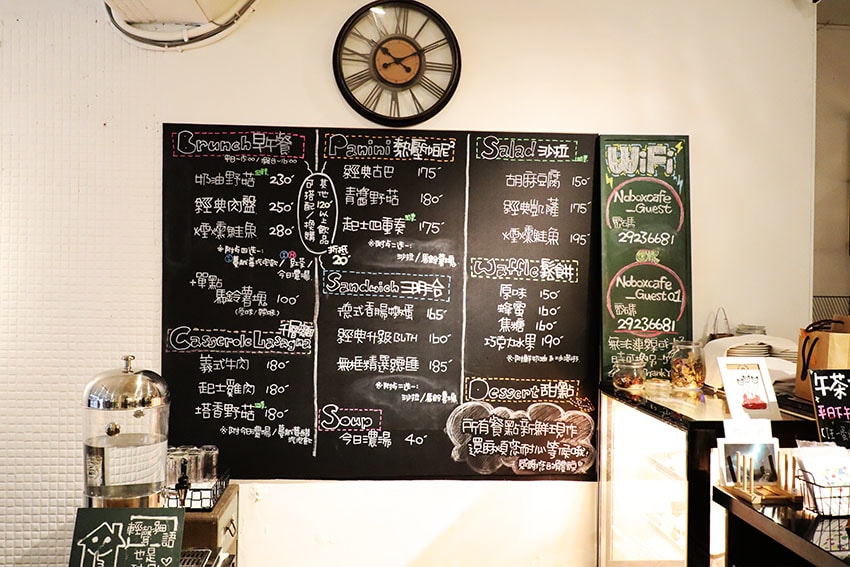 Brunch 早午餐
奶油野菇 230
經典肉盤 250
煙燻鮭魚 280
+單點
馬鈴薯塊 100
Casserole Lasagna 千層麵
義式牛肉 180
起士雞肉 180
塔香野菇 180
其他120以上飲品
可搭配/換購
折抵
20
Panini 熱壓帕尼²
經典古巴 175
青醬野菇 180
起士四重奏 175
※附卡二選一:
沙拉/馬鈴薯塊
Sandwich 三明治
德式香腸嫩蛋 165
經典升級BLTH 160
無框精選總匯 185
沙拉/馬鈴薯塊
Soup
今日濃湯 40
Salad 沙拉
胡麻豆腐 150
經典凱薩 175
煙燻鮭魚 195
Waffle 鬆餅
原味 150
蜂蜜 160
焦糖 160
巧克力水果 190
Dessert 甜點
所有餐點新鮮現作
還麻煩您耐心等候哦
WiFi
Noboxcafe
_Guest
密碼
29236681
OR
Noboxcafe
_Guest01
密碼
29236681
輕聲細語
也是
午茶
平日